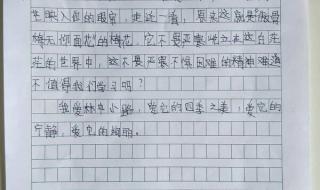 生映入但的眼帘,走近一看,原来这就是傲骨
梅无仰面花"的梅花,它不畏严寒屹立来这白茫
茫的世界中,这不畏严寒不惧困难的精神难道
不值得我们学习吗?
我爱林阜小路,爱它的四季之美,爱它的
宁静,爱它的绚丽。